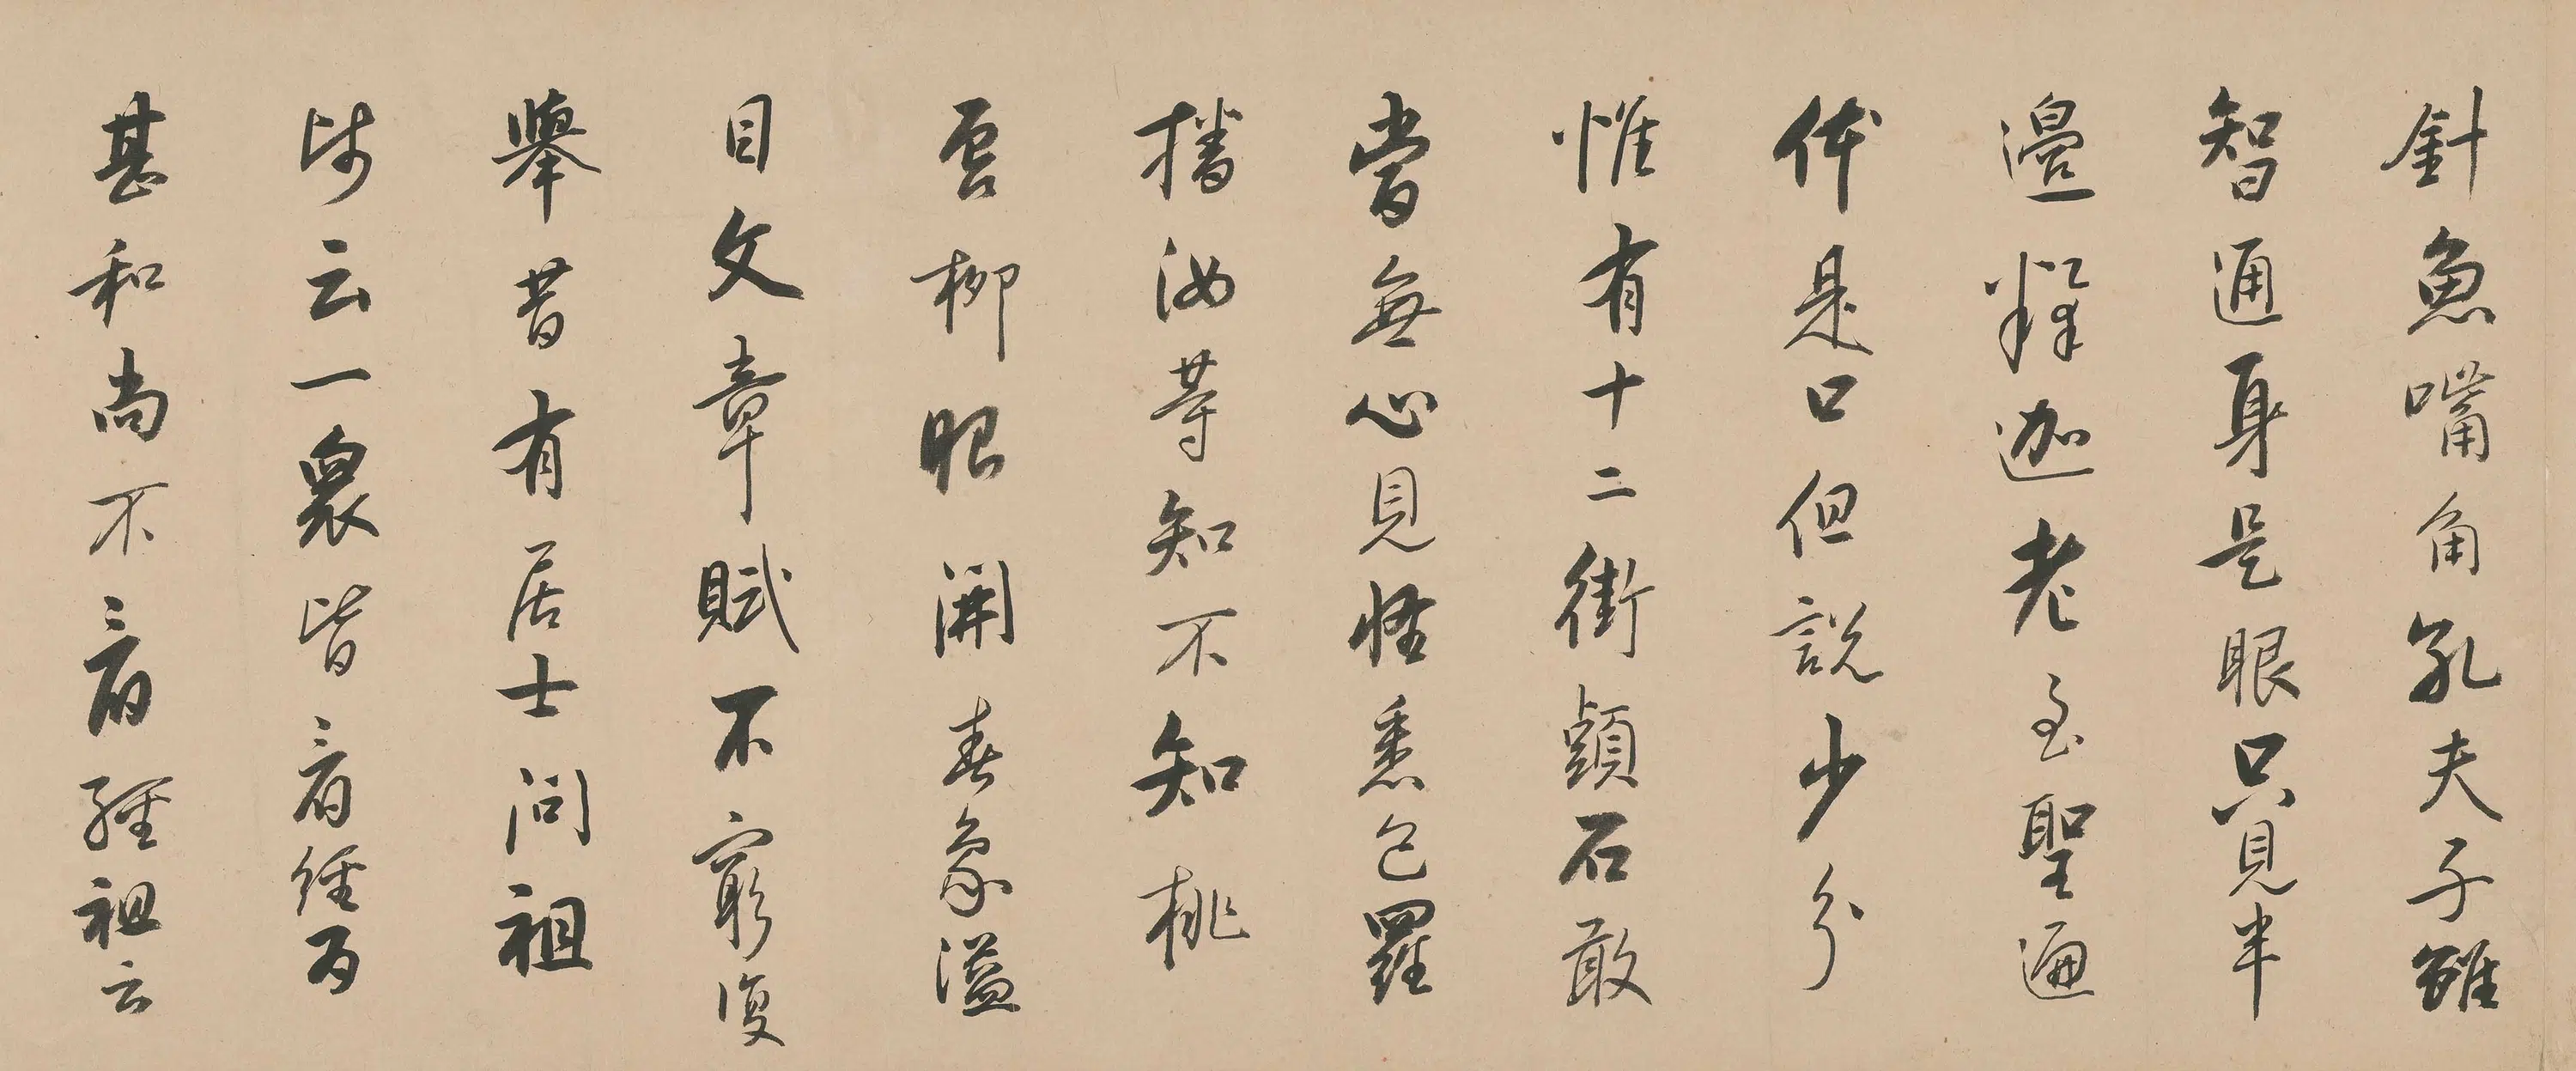 針魚嘴角孔夫子雖
智通身是眼只見半
邊釋迦老至聖遍
体是口但說少分
惟有十二街顗石敢
當無心見怪悉包羅
播汝等知不知桃
杏柳眼開春象溢
目文章賦不窮復
舉昔有居士問祖
師云一衆皆看経為
甚和尚不看經祖云